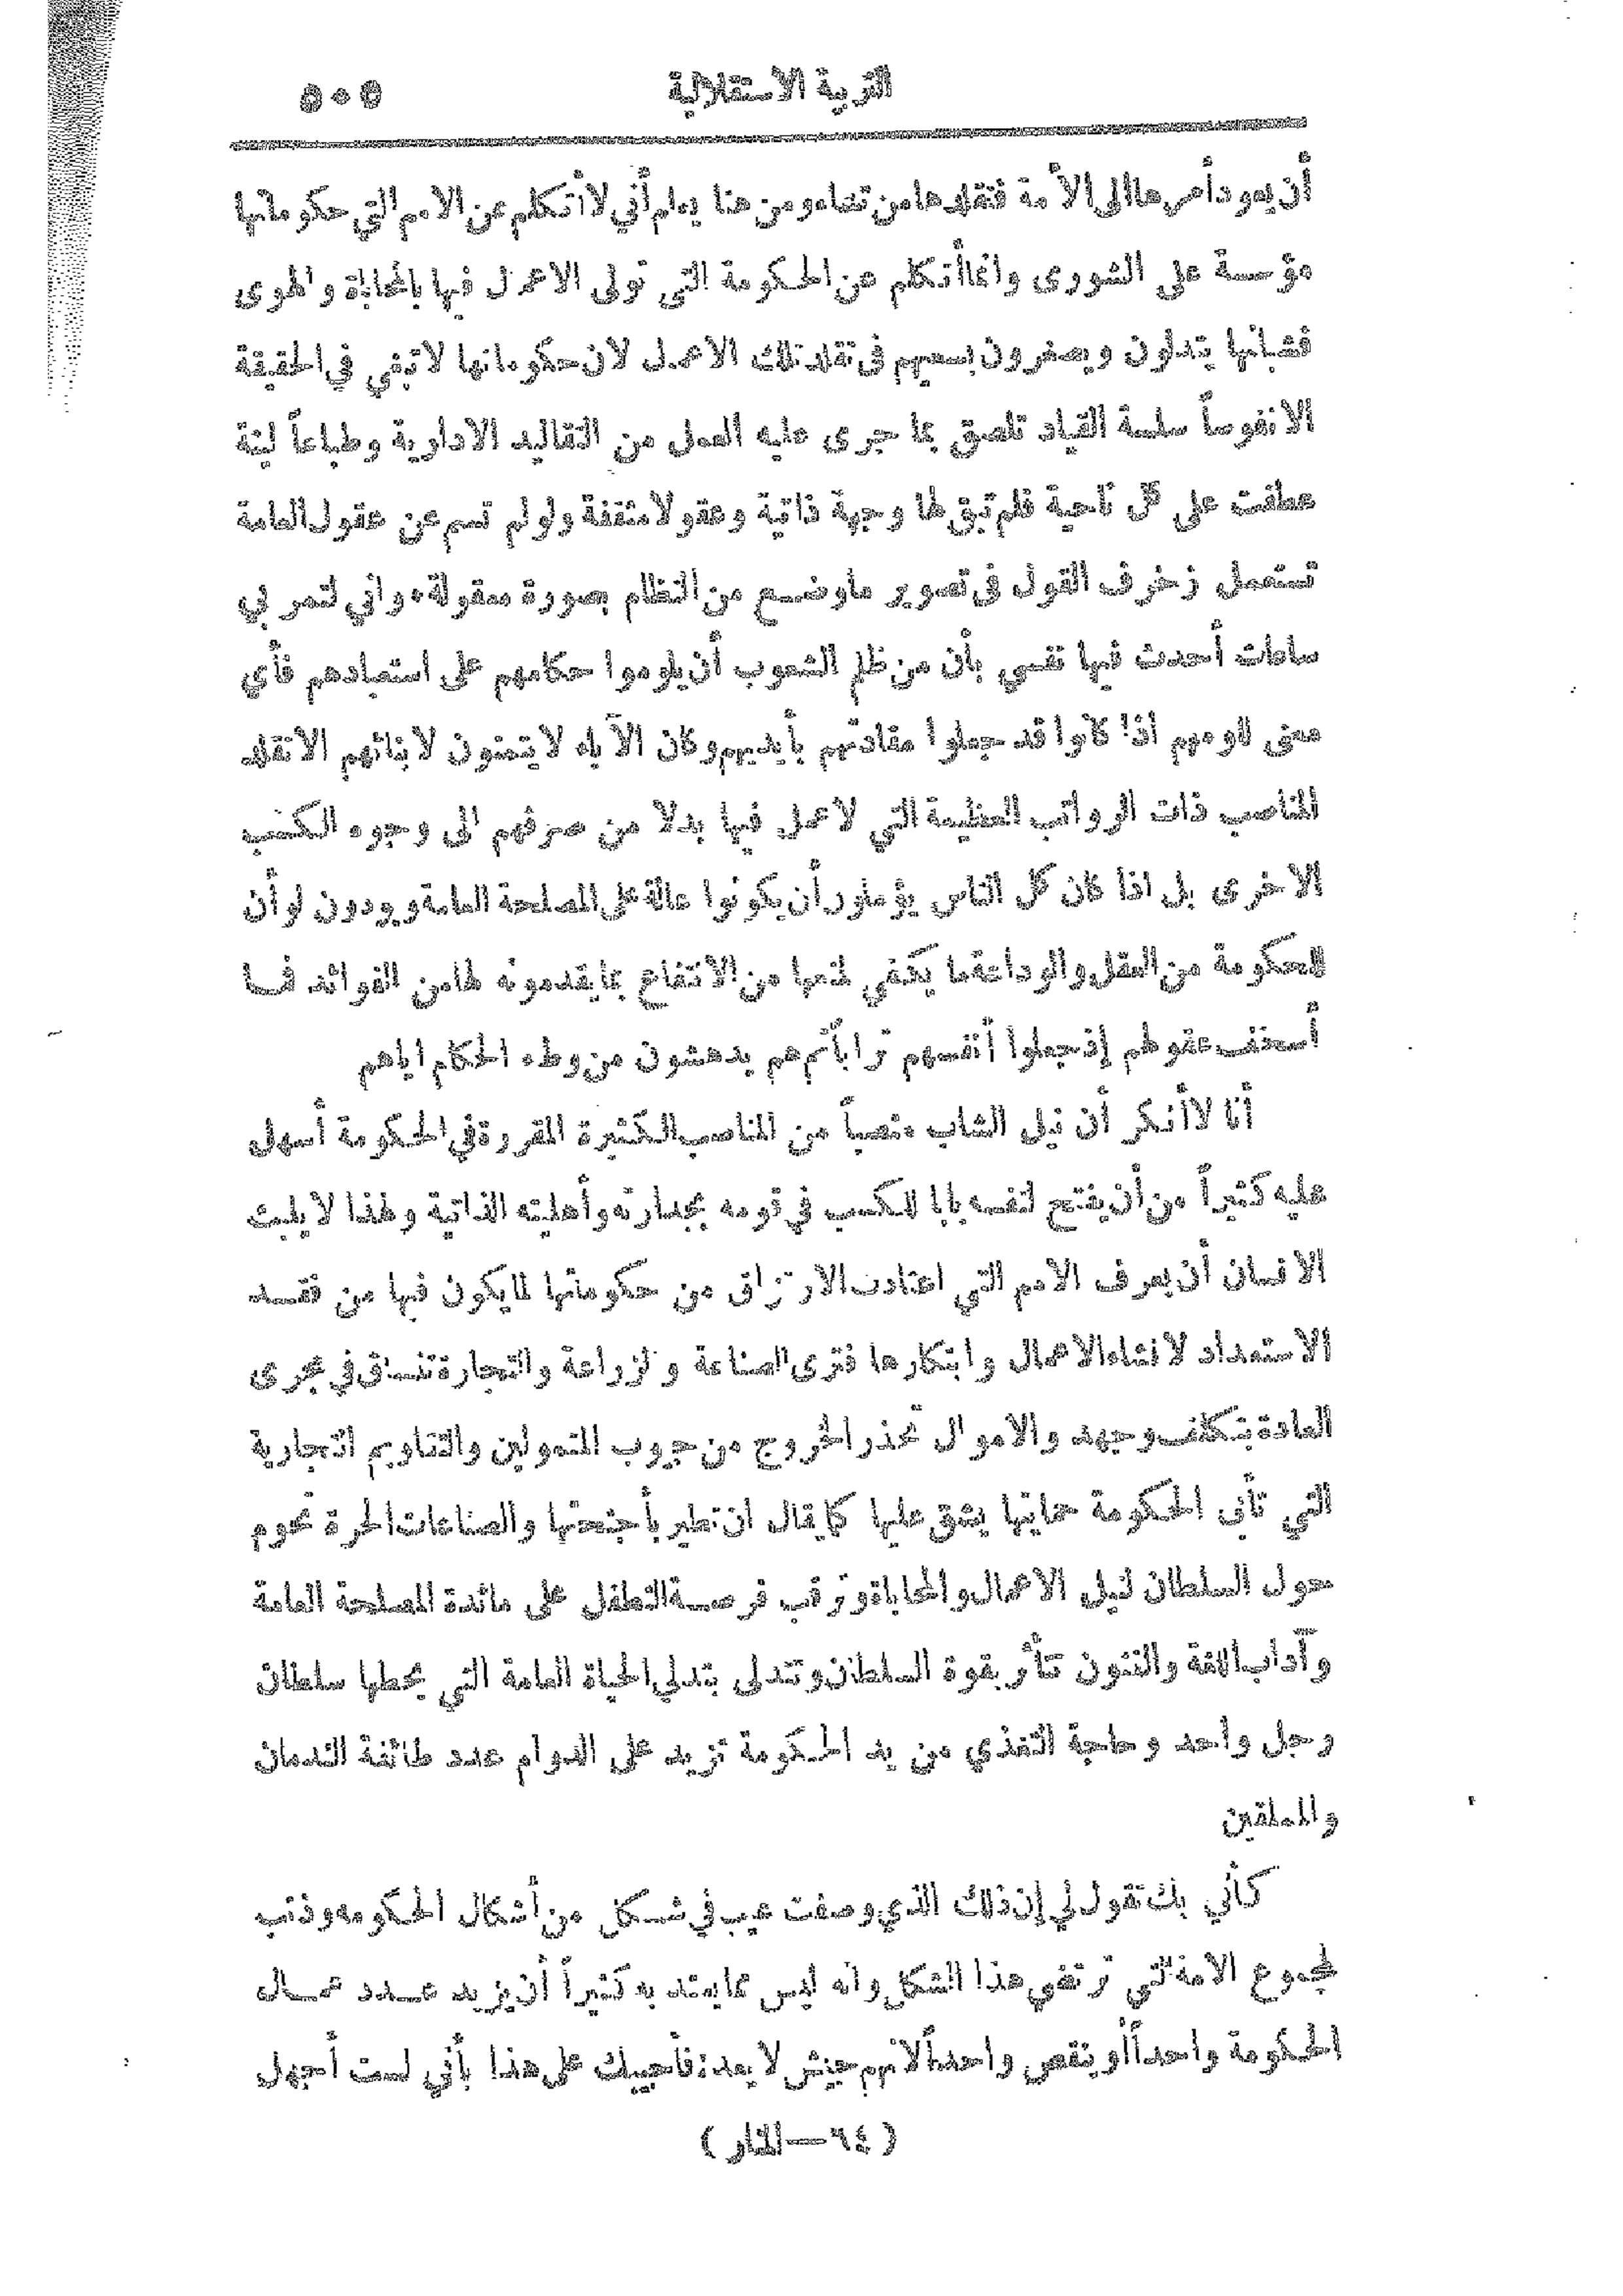 التربية الاستقلالية ٥٠٥
أن يعود أمرها الى الأمة فتقلدها من تشاء ومن هنا يعلم أني لا أتكلم عن الامم التي حكوماتها
مؤسسة على الشورى وانما أتكلم عن الحكومة التي تولى الاعمال فيها بالمحاباة والهوى
فشبانها يتدلون ويصغرون بسعيهم في تقلد تلك الاعمال لان حكوماتها لا تبغي في الحقيقة
الا نفوساً سلسة القياد تلصق بما جرى عليه العمل من التقاليد الادارية وطباعاً لينة
عطفت على كل ناحية فلم تبق لها وجهة ذاتية وعقولا مثقفة ولو لم تسم عن عقول العامة
تستعمل زخرف القول في تصوير ما وضع من النظام بصورة معقولة، واني لتمر بي
ساعات أحدث فيها نفسي بأن من ظلم الشعوب أن يلوموا حكامهم على استعبادهم فأي
معنى للومهم اذا كانوا قد جعلوا مقادتهم بأيديهم وكان الآباء لا يتمنون لابنائهم الا تقلد
المناصب ذات الرواتب العظيمة التي لا عمل فيها بدلا من صرفهم الى وجوه الكسب
الاخرى بل اذا كان كل الناس يؤملون أن يكونوا عالة على المصلحة العامة ويودون لو أن
للحكومة من العقل والوداعة ما يكفي لمنعها من الانتفاع بما يقدمونه لها من الفوائد فما
أسخف عقولهم إذ جعلوا أنفسهم تراباً ثم هم يدهشون من وطء الحكام اياهم
أنا لا أنكر أن نيل الشاب منصباً من المناصب الكثيرة المقررة في الحكومة أسهل
عليه كثيراً من أن يفتح لنفسه بابا للكسب في قومه بجدارته وأهليته الذاتية ولهذا لا يلبث
الانسان أن يعرف الامم التي اعتادت الارتزاق من حكوماتها لما يكون فيها من فقد
الاستعداد لانشاء الاعمال وابتكارها فترى الصناعة والزراعة والتجارة تنساق في مجرى
العادة بتكلف وجهد والاموال تحذر الخروج من جيوب المتمولين والتقاويم التجارية
التي تأبى الحكومة حمايتها يشق عليها كما يقال ان تطير بأجنحتها والصناعات الحرة تحوم
حول السلطان لنيل الاعمال والمحاباة وترقب فرصة التطفل على مائدة المصلحة العامة
وآداب اللغة والفنون تتأثر بقوة السلطان وتتدلى بتدلي الحياة العامة التي يحطها سلطان
رجل واحد وحاجة التغذي من يد الحكومة تزيد على الدوام عدد طائفة الندمان
والمملقين
كأني بك تقول لي إن ذلك الذي وصفت عيب في شكل من أشكال الحكومه وذنب
لمجموع الامة التي ترتضي هذا الشكل وانه ليس مما يعتد به كثيراً أن يزيد عدد عمال
الحكومة واحداً أو ينقص واحداً لانهم جيش لا يعد: فأجيبك على هذا بأني لست أجهل
(٦٤—المنار)